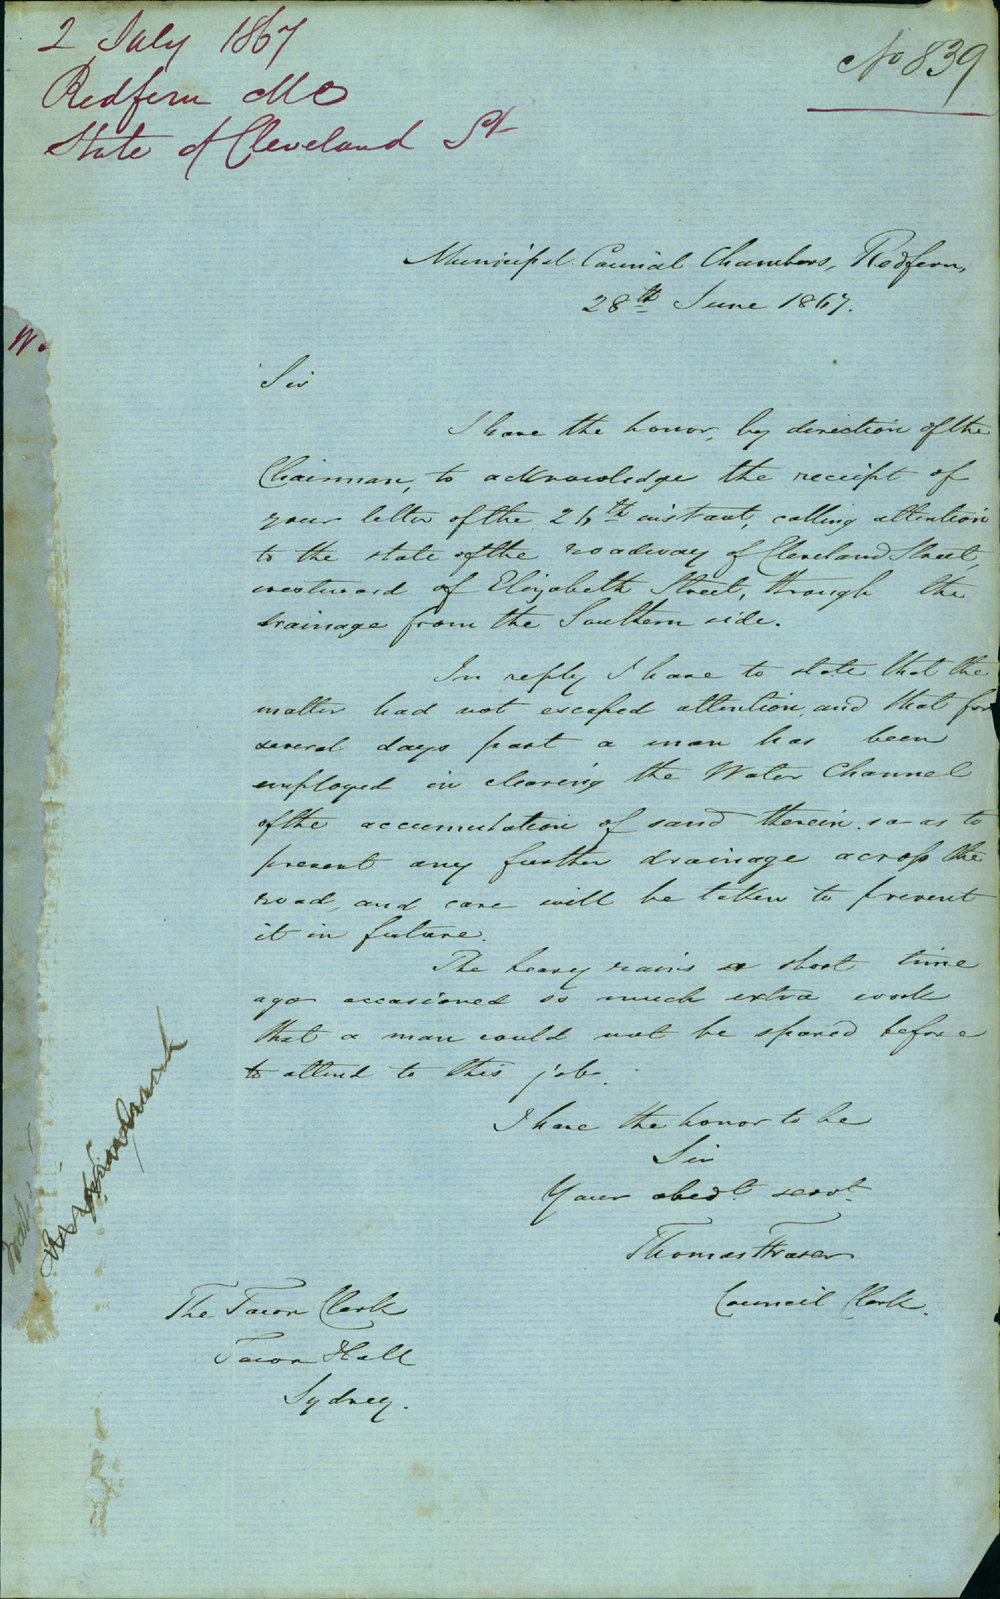 2 July 1867
Redfern MC
State of Cleveland St
No 839
Municipal Council Chambers, Redfern,
28th June 1867.
Sir
I have the honor, by direction of the
Chairman, to acknowledge the receipt of
your letter of the 26th instant, calling attention
to the state of the roadway of Cleveland Street,
westward of Elizabeth Street, through the
drainage from the Southern side.
In reply I have to state that the
matter had not escaped attention, and that for
several days past a man has been
employed in clearing the Water Channel
of the accumulation of sand therein so as to
prevent any further drainage across the
road, and care will be taken to prevent
it in future.
The heavy rains a short time
ago occasioned so much extra work
that a man could not be spared before
to attend to this job.
I have the honor to be
Sir
Your obedt. servt.
Thomas Fraser
Council Clerk.
The Town Clerk
Town Hall
Sydney.